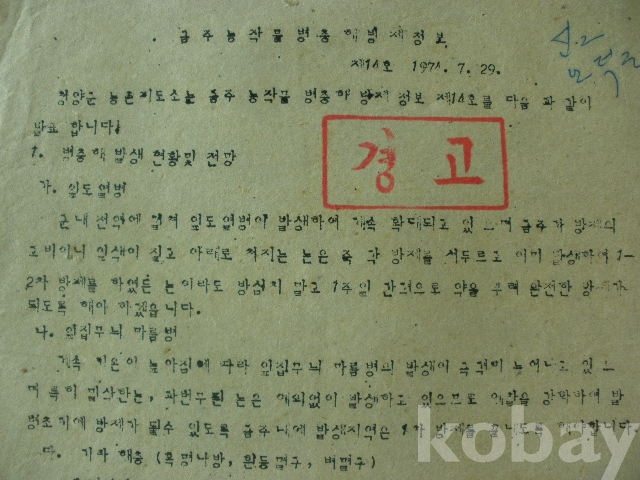 금주농작물병충해방제정보
제14호 1971. 7. 29.
청양군 농촌지도소는 금주 농작물 병충해 방제 정보 제14호를 다음과 같이
발표 합니다.
경고
1. 병충해 발생 현황및 전망
가. 잎도열병
군내 전역에 걸쳐 잎도열병이 발생하여 계속 확대되고 있으며 금주가 방제의
고비이니 잎색이 짙고 아래로 처지는 논은 즉각 방제를 서두르고 이미 발생하여 1-
2차 방제를 하였든 논이라도 방심치 말고 1주일 간격으로 약을 뿌려 완전한 방제가
되도록 해야 하겠습니다.
나. 잎집무늬 마름병
계속 기온이 높아짐에 따라 잎집무늬 마름병의 발생이 급격히 늘어나고 있으
며 특히 밀식한논, 과번무된 논은 예외없이 발생하고 있으므로 예찰을 강화하여 발
병초기에 방제가 될수 있도록 금주내에 발생지역은 1차 방제를 끝내도록 해야합니다
다. 기타 해충 (혹명나방, 흰등멸구, 벼멸구)
kobay